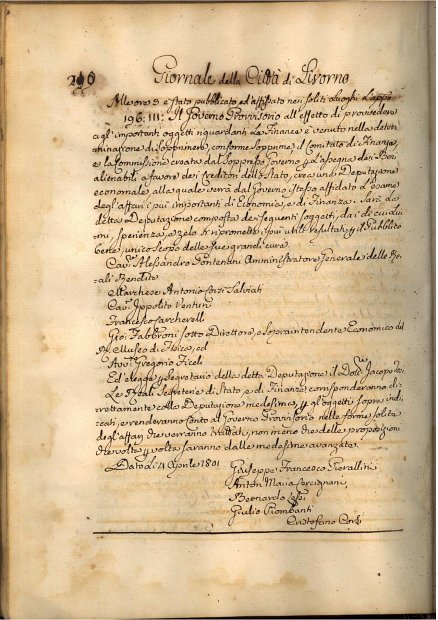 240 Giornale della Città di Livorno
Alle ore 3 è stato pubblicato ed affissato nei soliti Luoghi L'app.
196: III: Il Governo Provvisorio all effetto di provvedere
agl' importanti oggetti riguardanti Le Finanze è venuto nella deter
minazione di sopprimere, conforme sopprime il Comitato di Finanze,
e la Commissione creata dal soppresso Governo p l'assegna dei Beni
alienabili a favore dei Creditori dello Stato, crea una Deputazione
economale, alla quale verrà dal Governo istesso affidato l'esame
degl' affari i più importanti di Economia, e di Finanza. Sarà la
detta Deputazione composta dei seguenti soggetti, da i di cui lu
mi, sperienza, e zelo si ripromette i più utili resultati p il Pubblico
bene, unico scopo delle sue grandi cure.
Cav. Alessandro Pontenani Amministratore Generale delle Re=
gali Rendite
Marchese Antonio Corsi Salviati
Cav. Ippolito Venturi
Francesco Carcherelli
Gio: Fabbroni sotto Direttore, e Sopraintendente Economico del
R. Museo di Fisica, ed
Avv. Gregorio Ficeli
Ed elegge p Segretario della detta Deputazione il Dott. Jacopo
Le Reali Segreterie di Stato, e di Finanze corrisponderanno di=
rettamente colla Deputazione medesima, p gl' oggetti sopra indi
cati, e renderanno Conto al Governo Provvisorio nelle forme solite
degl' affari che verranno trattati, non meno che delle proposizioni
che volta p volta saranno dalle medesime avanzate.
Dato di 4 Aprile 1801
Giuseppe Francesco Pierallini
Anton Maria Cercignani
Bernardo Lessi
Giulio Piombanti
Cristofano Corsi